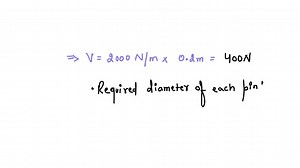 ⇒ V = 2000 N/m x 0.2m = 400N
• Required diameter of each pin'